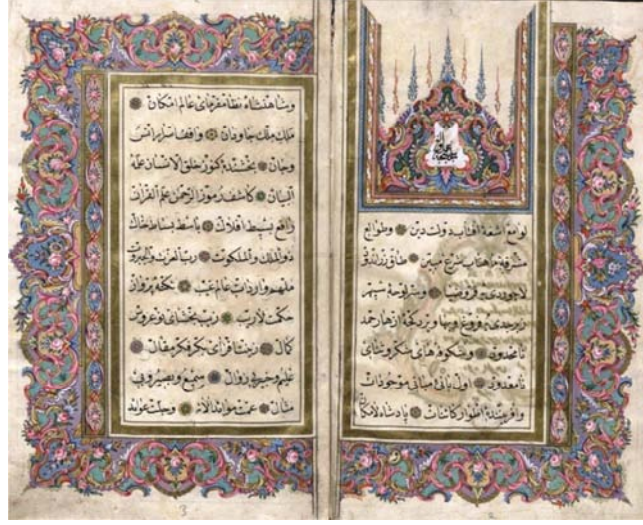 لوامع اشعهٔ آفتاب دولت دین وطوالع
مشرقهٔ ماهتاب شرع مبین طاق
لاجوردی به فروضیا سپهر
زبرجدی به ازهار حمد
نامحدود وشکوفه های شکر وثنای
نامعدود اول بانی مبانی موجودات
وآفرینندهٔ اطوار کائنات پادشاه لامکان
وشاهنشاه نظام فرمای عالم امکان
ملک ملک جاودان واقف اسرار انس
وجان بخشندهٔ کنوز خلق الانسان علمه
البیان کاشف رموز الرحمن علم القرآن
رافع بسیط افلاک باسط بساط خاک
ذو الملک والملکوت رب العزت والجبروت
ملهم واردات عالم غیب نکته پرداز
حکمت لاریب زیب بخشای نوعروس
کمال زینت افزای بکر فکر مقال
علیم وخبیر بی زوال سمیع وبصیر بی
مثال عمت موائد آلائه وجلت عوائد
3